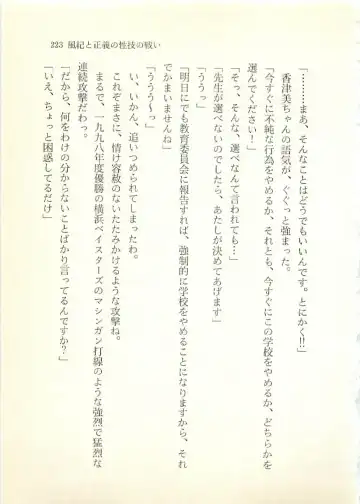 223 風紀と正義の性技の戦い
「………まあ、そんなことはどうでもいいんです。とにかく!!」
香津美ちゃんの語気が、ぐぐっと強まった。
「今すぐに不純な行為をやめるか、それとも、今すぐにこの学校をやめるか、どちらかを
選んでください！」
「そっ、そんな、選べなんて言われても…」
「先生が選べないのでしたら、あたしが決めてあげます」
「ううっ」
「明日にでも教育委員会に報告すれば、強制的に学校をやめることになりますから、それ
でかまいませんね」
「うううう～っ」
い、いかん、追いつめられてしまったわ。
これぞまさに、情け容赦のないたたみかけるような攻撃ね。
まるで、一九九八年度優勝の横浜ベイスターズのマシンガン打線のような強烈で猛烈な
連続攻撃だわっ。
「だから、何をわけの分からないことばかり言ってるんですか？」
「いえ、ちょっと困惑してるだけ」